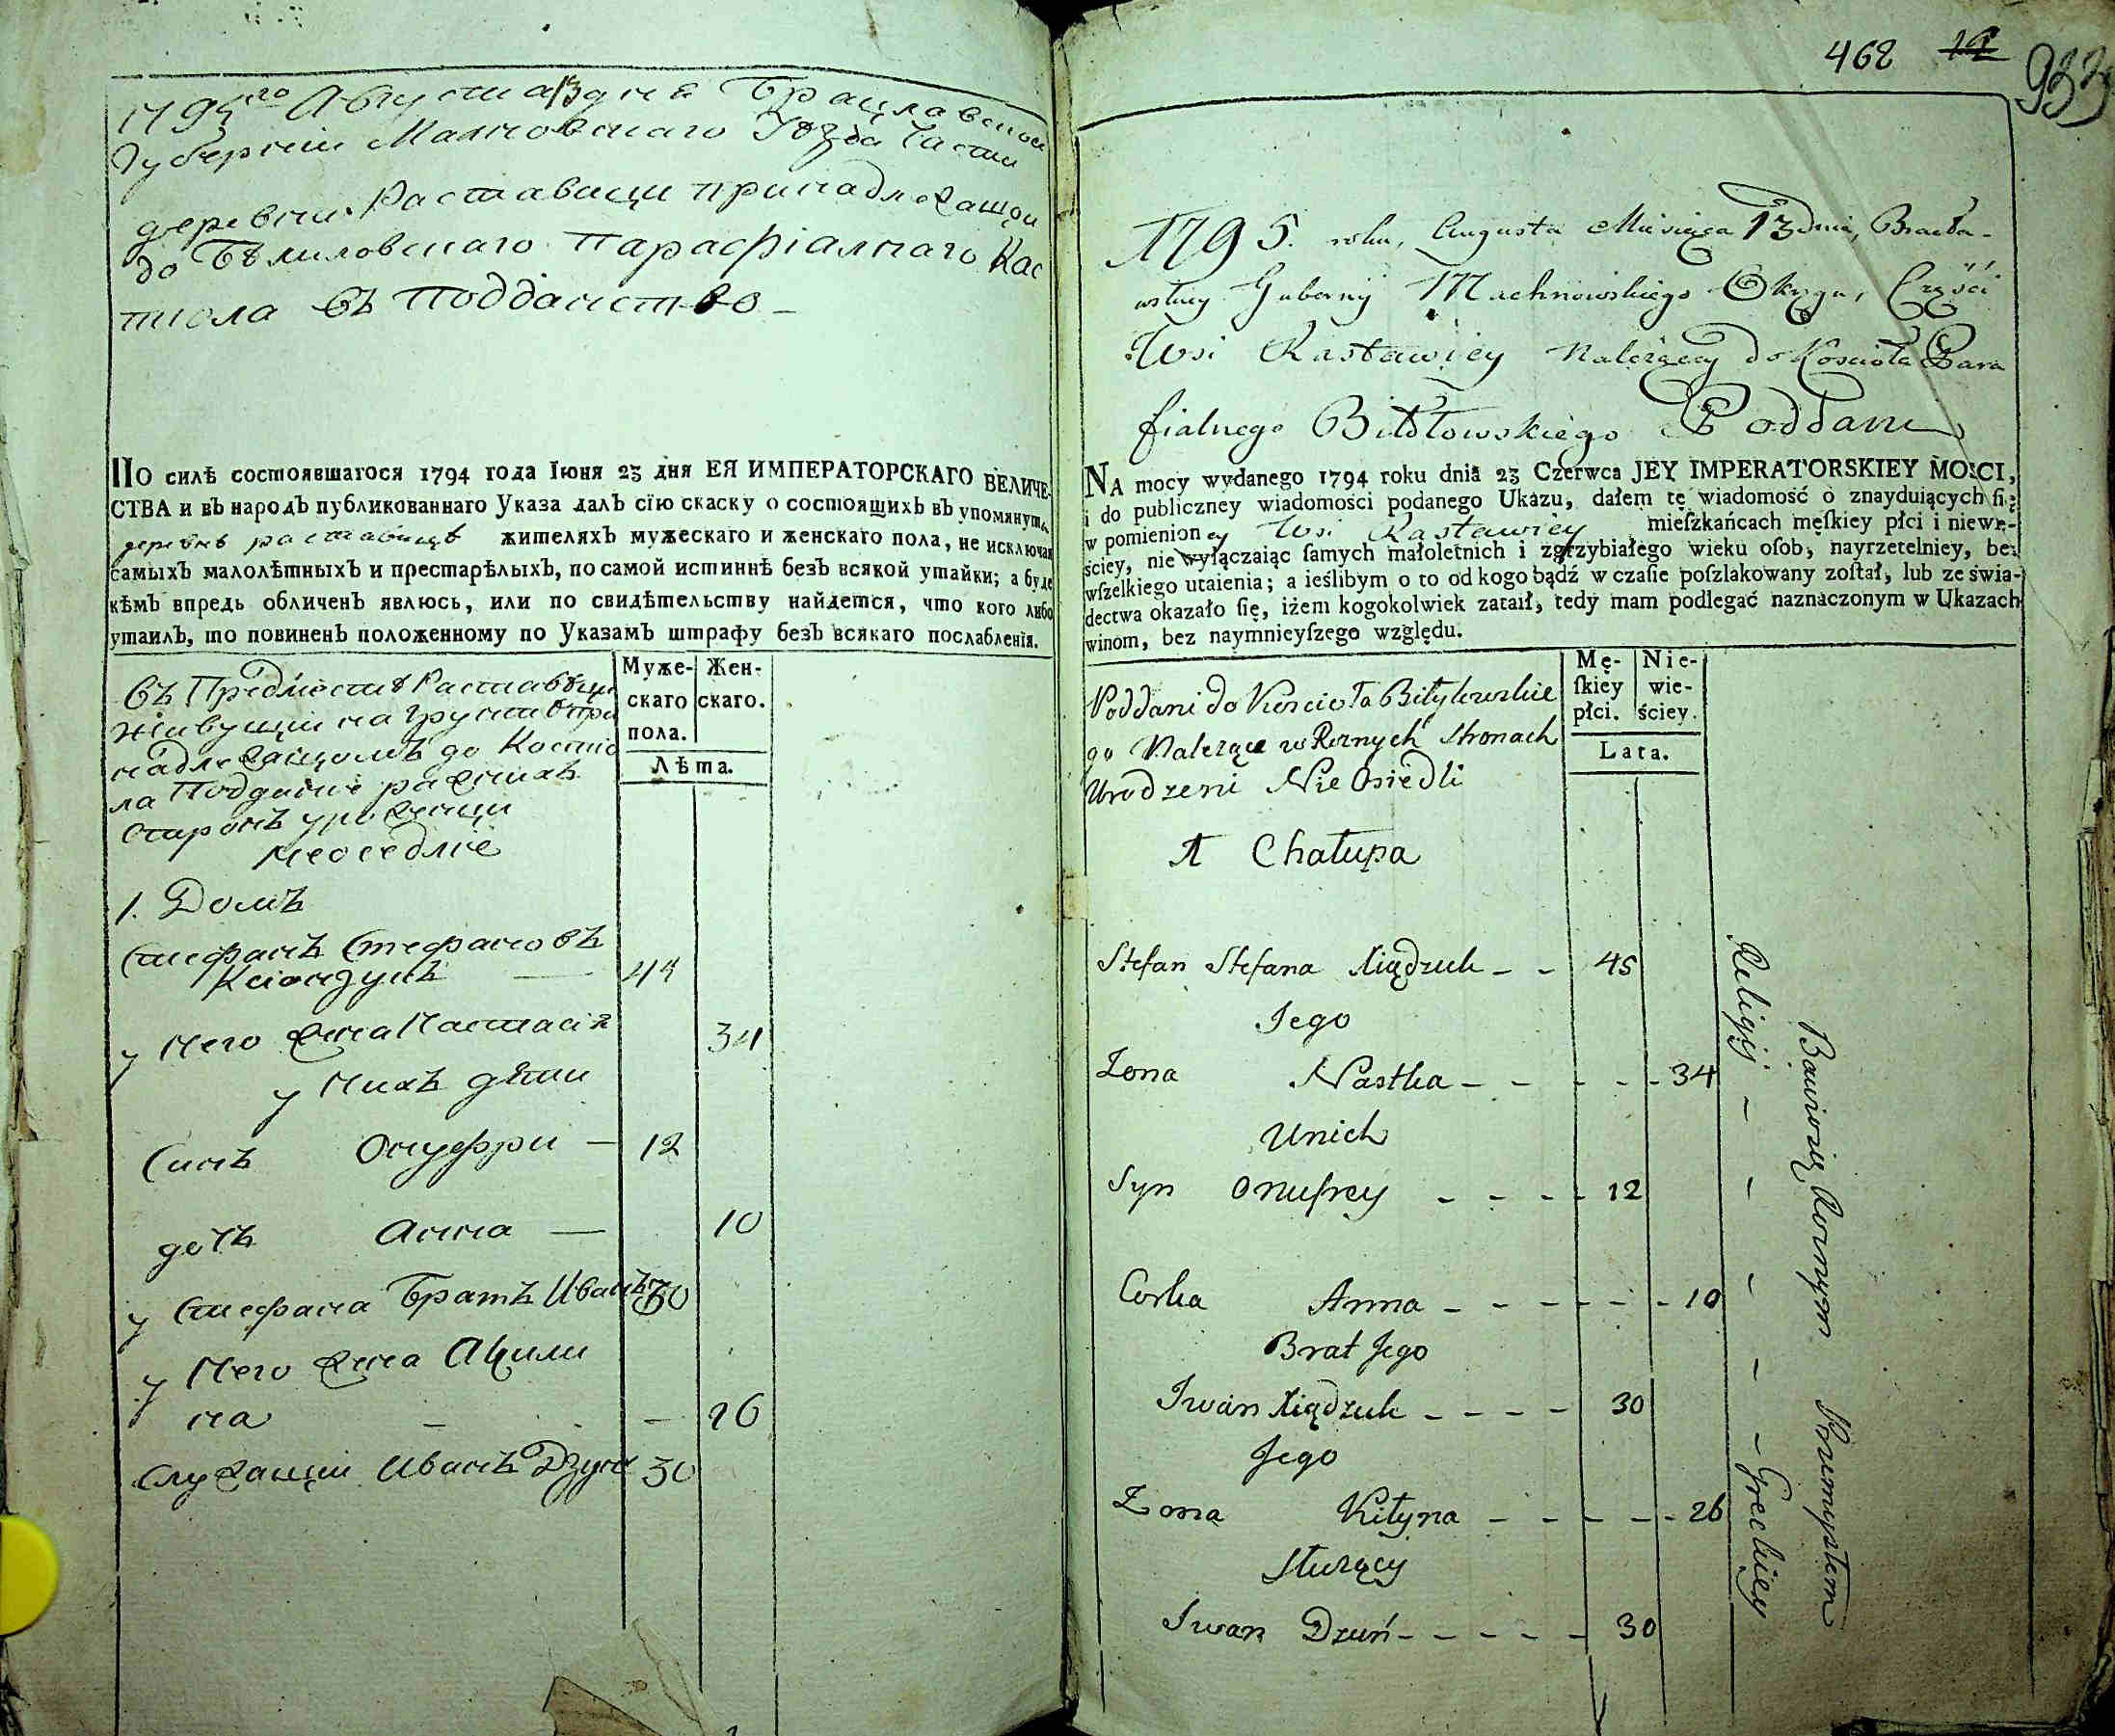 1795го Августа 13 дня Брацлавской
Губернии Махновскаго Уѣзда Части
деревни Раставици принадлежащои
до Бѣлиловскаго Парафіалнаго Кос
тиола въ Подданство
ПО силѣ состоявшагося 1794 года Іюня 23 дня ЕЯ ИМПЕРАТОРСКАГО ВЕЛИЧЕ-
СТВА и въ народъ публикованнаго Указа далъ сію скаску о состоящихъ въ упомянут
деревнѣ раставицѣ жителяхъ мужескаго и женскаго пола, не исключая
самыхъ малолѣтныхъ и престарѣлыхъ, по самой истиннѣ безъ всякой утайки; а буде
кѣмъ впредь обличенъ явлюсь, или по свидѣтельству найдется, что кого либо
утаилъ, то повиненъ положенному по Указамъ штрафу безъ всякаго послабленія.
Муже-
скаго
пола.
Жен-
скаго.
Лѣта.
въ Предместѣ Раставици
Живущии на Грунтѣ при
надлежащомъ до Костіо
ла Поддание разнихъ
сторонъ урожденци
неоседліе
1. Домъ
Стефанъ Стефановъ
Ксіондзукъ 44
у Него жена Настасія 34
у Нихъ дѣти
Синъ Онуфри — 12
дочь Анна — 10
у Стефана Братъ Иванъ 30
у Него жена Акили
на — 26
Служащии Иванъ Дзунъ 30
468 12 933
1795. roku, Augusta Miesiąca 13 dnia, Bracła-
wskiey Gubernij Machnowskiego Okręgu, Części
Wsi Rastawicy Należącey do Kościoła Para
fialnego Biłołowskiego Poddani
NA mocy wydanego 1794 roku dnia 23 Czerwca JEY IMPERATORSKIEY MOŚCI,
i do publiczney wiadomości podanego Ukazu, dałem tę wiadomość o znayduiących ſię
w pomienioney Wsi Rastawicy mieſzkańcach męſkiey płci i niewie-
ściey, nie wyłączaiąc ſamych małoletnich i zgrzybiałego wieku oſob, nayrzetelniey, bez
wſzelkiego utaienia; a ieślibym o to od kogo bądź w czaſie poſzlakowany zoſtał, lub ze świa-
dectwa okazało ſię, iżem kogokolwiek zataił, tedy mam podlegać naznaczonym w Ukazach
winom, bez naymnieyſzego względu.
Mę-
ſkiey
płci.
Nie-
wie-
ściey.
Lata.
Poddani do Kościoła Biłyłowskie
go Należące w Roznych Stronach
Urodzeni Nie Osiedli
1 Chałupa
Stefan Stefana Xiądzuk - - 45
Jego
Żona Nastka - - - - - 34
Unich
Syn Onufrey - - - - 12
Corka Anna - - - - - - 10
Brat Jego
Iwan Xiądzuk - - - - 30
Jego
Żona Kiłyna - - - - - 26
Służący
Iwan Dzuń - - - - - 30
Religij - - - - - Greckiey
Bawiowią Rornym Przemysłem